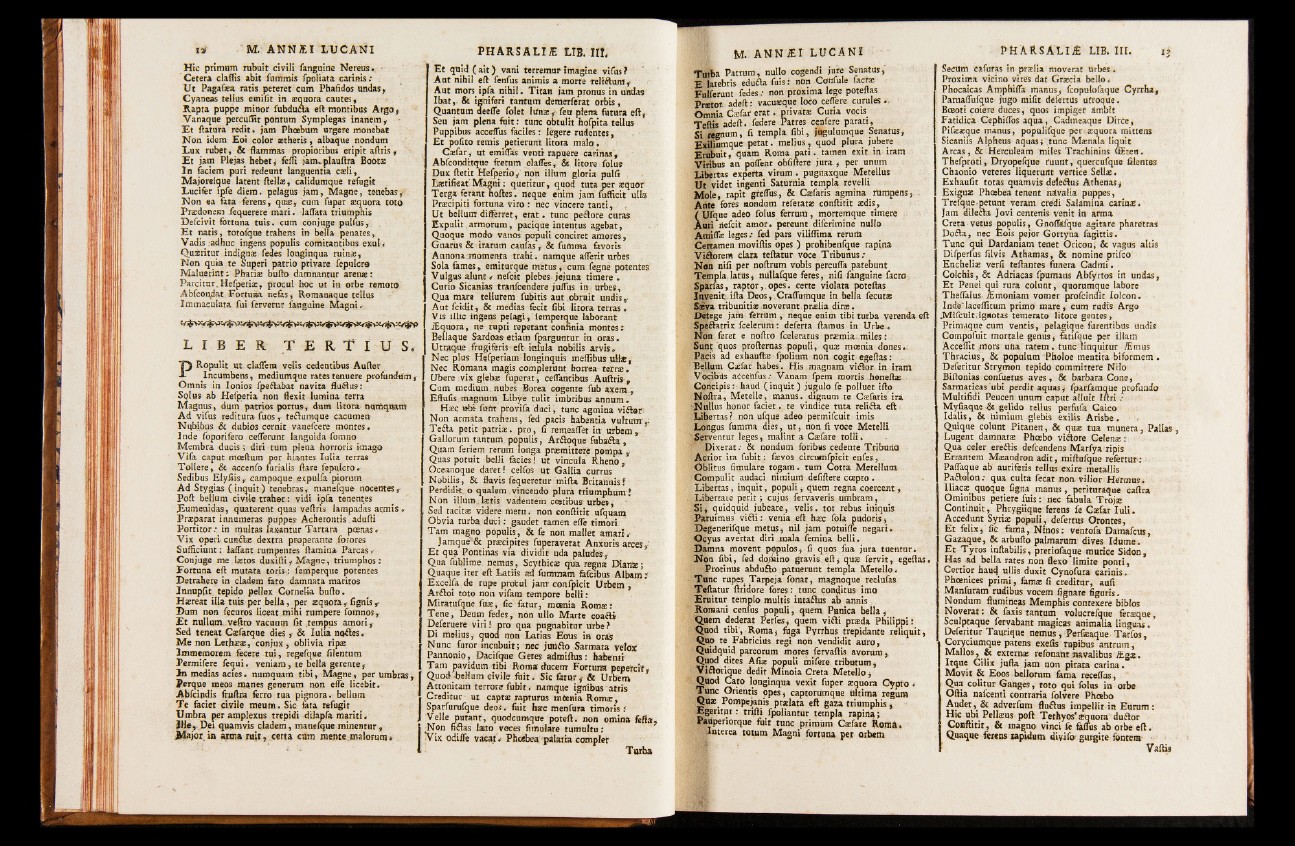 12 M. ANNÆI LUCANI
Hic primum rubuit civili sanguine Nereus.
Cetera classis abit summis spoliata carinis:
Ut Pagasæa ratis peteret cum Phasidos undas,
Cyaneas tellus emisit in æquora cautes,
Rapta puppe minor subducta est montibus Argo,
Vanaque percussit pontum Symplegas inanem,
Et statura redit. jam Phœbum urgere monebat
Non idem Eoi color ætheris, albaque nondum
Lux rubet, & flammas propioribus eripit astris,
Et jam Plejas hebet, fessi jam plaustra Bootæ
In faciem puri redeunt languentia cæli,
Majoresque latent stellæ, calidumque refugit
Lucifer ipse diem. pelagus jam, Magne, tenebas,
Non ea fata ferens, quæ, cum super æquora toto
Prædonem sequerere mari. lassata triumphis
Descivit fortuna tuis. cum conjuge pulsus,
Et natis, totosque trahens in bella penates,
Vadis adhuc ingens populis comitantibus exul.
Quæritur indignæ sedes longinqua ruinæ,
Non quia te Superi patrio privare sepulcro
Maluerint: Phariæ busto damnantur arenæ:
Parcitur Hesperiæ, procul hoc ut in orbe remoto
Abscondat Fortuna nefas, Romanaque tellus
Immaculata sui servetur sanguine Magni.
LIBER TERTIUS.
PRopulit ut classem velis cedentibus Auster
Incumbens, mediumque rates tenuere profundum,
Omnis in Ionios spectabat navita fluctus:
Solus ab Hesperia non flexit lumina terra
Magnus, dum patrios portus, dum litora numquam
Ad visus reditura suos, tectumque cacumen
Nubibus & dubios cernit vanescere montes.
Inde soporifero cesserunt languida somno
Membra ducis; diri tum plena horroris imago
Visa caput mœstum per hiantes Julia terras
Tollere, & accenso furialis stare sepulcro.
Sedibus Elysiis, campoque expulsa piorum
Ad Stygias (inquit) tenebras, manesque nocentes,
Post bellum civile traher: vidi ipsa tenentes
Eumenidas, quaterent quas vestris lampadas armis.
Præparat innumeras puppes Acherontis adusti
Portitor: in multas laxantur Tartara pœnas.
Vix operi cunctæ dextra properante sorores
Sufficiunt: lassant rumpentes stamina Parcas.
Conjuge me lætos duxisti, Magne, triumphos:
Fortuna est mutata toris: semperque potentes
Detrahere in cladem fato damnata maritos
Innupsit tepido pellex Cornelia busto.
Hæreat illa tuis per bella, per æquora, signis,
Dum non securos liceat mihi rumpere somnos,
Et nullum vestro vacuum sit tempus amori,
Sed teneat Cæsarque dies, & Julia noctes.
Me non Lethææ, conjux, oblivia ripæ
Immemorem fecere tui, regesque silentum
Permisere sequi. veniam, te bella gerente,
In medias acies. numquam tibi, Magne, per umbras,
Perque meos manes generum non esse licebit.
Abscindis frustra ferro tua pignora. bellum
Te faciet civile meum. Sic fata refugit
Umbra per amplexus trepidi dilapsa mariti.
Ille, Dei quamvis cladem, manesque minentur,
Major in arma ruit, certa cum mente malorum.
PHARSALIÆ LIB. III.
Et quid (ait) vani terremur imagine visus?
Aut nihil est sensus animis a morte relictum,
Aut mors ipsa nihil. Titan jam pronus in undas
Ibat, & igniferi tantum demerserat orbis,
Quantum deesse solet lunæ, seu plena futura est,
Seu jam plena fuit: tunc obtulit hospita tellus
Puppibus accessus faciles: legere rudentes,
Et posito remis petierunt litora malo.
Cæsar, ut emissas venti rapuere carinas,
Absconditque fretum classes, & litore solus
Dux stetit Hesperio, non illum gloria pulsi
Lætificat Magni: queritur, quod tuta per æquor
Terga ferant hostes. neque enim jam sufficit ulla
Præcipiti fortuna viro: nec vincere tanti,
Ut bellum differret, erat. tunc pectore curas
Expulit armorum, pacique intentus agebat,
Quoque modo vanos populi conciret amores,
Gnarus & irarum causas, & summa favoris
Annona momenta trahi. namque asserit urbes
Sola fames, emiturque metus, cum segne potentes
Vulgus alunt. nescit plebes jejuna timere.
Curio Sicanias transcendere jussus in urbes,
Qua mare tellurem subitis aut obruit undis,
Aut scidit, & medias fecit sibi litora terras.
Vis illic ingens pelagi, semperque laborant
Æquora, ne rupti repetant confinia montes:
Bellaque Sardoas etiam sparguntur in oras.
Utraque frugiferis est insula nobilis arvis.
Nec plus Hesperiam longinquis messibus ullæ,
Nec Romana magis complerunt horrea terræ.
Ubere vix glebæ superat, cessantibus Austris,
Cum medium nubes Borea cogente sub axem,
Effusis magnum Libye tulit imbribus annum.
Hæc ubi sunt provisa duci, tunc agmina victor
Non armata trahens, sed pacis habentia vultum,
Tecta petit patriæ. pro, si remeasset in urbem,
Gallorum tantum populis, Arctoque subacta,
Quam seriem rerum longa præmittere pompa,
Quas potuit belli facies! ut vincula Rheno,
Oceanoque daret! celsos ut Gallia currus
Nobilis, & flavis sequeretur mista Britannis!
Perdidit o qualem vincendo plura triumphum!
Non illum lætis vadentem cœtibus urbes,
Sed tacitæ videre metu. non constitit usquam
Obvia turba duci: gaudet tamen esse timori
Tam magno populis, & se non mallet amari.
Jamque & præcipites superaverat Anxuris arces,
Et qua Pontinas via dividit uda paludes,
Qua sublime nemus, Scythicæ qua regna Dianæ;
Quaque iter est Latiis ad summam fascibus Albam:
Excelsa de rupe procul jam conspicit Urbem,
Arctoi toto non visam tempore belli:
Miratusque suæ, sic fatur, mœnia Romæ:
Tene, Deum sedes, non ullo Marte coacti
Deseruere viri! pro qua pugnabitur urbe?
Di melius, quod non Latias Eous in oras
Nunc furor incubuit; nec juncto Sarmata velox
Pannonio, Dacisque Getes admistus: habenti
Tam pavidum tibi Roma ducem Fortuna pepercit,
Quod bellum civile fuit. Sic fatur, & Urbem
Attonitam terrore subit. namque ignibus atris
Creditur ut captæ rapturus mœnia Romæ,
Sparsurusque deos. fuit hæc mensura timoris:
Velle putant, quodcumque potest. non omina festa,
Non fictas læto voces simulare tumultu:
Vix odisse vacat. Phœbea palatia compler
Turba
M. ANNÆI LUCANI
Turba Patrum, nullo cogendi jure Senatus,
E latebris educta suis: non Consule sacræ
Fulserunt sedes: non proxima lege potestas
Prætor adest: vacuæque loco cessere curules.
Omnia Cæsar erat. privatæ Curia vocis
Testis adest. sedere Patres censere parati,
Si regnum, si templa sibi, jugulumque Senatus,
Exiliumque petat. melius, quod plura jubere
Erubuit, quam Roma pati. tamen exit in iram
Viribus an possent obsistere jura, per unum
Libertas experta virum. pugnaxque Metellus
Ut videt ingenti Saturnia templa revelli
Mole, rapit gressus, & Cæsaris agmina rumpens,
Ante fores nondum reseratæ constitit ædis,
(Usque adeo solus ferrum, mortemque timere
Auri nescit amor. pereunt discrimine nullo
Amissæ leges: sed pars vilissima rerum
Certamen movistis opes) prohibensque rapina
Victorem clara testatur voce Tribunus:
Non nisi per nostrum vobis percussa patebunt
Templa latus, nullasque feres, nisi sanguine sacro
Sparsas, raptor, opes. certe violata potestas
Invenit ista Deos, Crassumque in bella secutæ
Sæva tribunitiæ noverunt prælia diræ.
Detege jam ferrum, neque enim tibi turba verenda est
Spectatrix scelerum: deserta stamus in Urbe.
Non feret e nostro sceleratus præmia miles:
Sunt quos prosternas populi, quæ mœnia dones.
Pacis ad exhaustæ spolium non cogit egestas:
Bellum Cæsar habes. His magnam victor in iram
Vocibus accensus: Vanam spem mortis honestæ
Concipis: haud (inquit) jugulo se polluet isto
Nostra, Metelle, manus. dignum te Cæsaris ira
Nullus honor faciet. te vindice tuta relicta est
Libertas? non usque adeo permiscuit imis
Longus summa dies, ut, non si voce Metelli
Serventur leges, malint a Cæsare tolli.
Dixerat: & nondum foribus cedente Tribuno
Acrior ira subit: sævos circumspicit enses,
Oblitus simulare togam. tum Cotta Metellum
Compulit audaci nimium desistere cœpto.
Libertas, inquit, populi, quem regna coercent,
Libertate perit; cujus servaveris umbram,
Si, quidquid jubeare, velis. tot rebus iniquis
Paruimus victi: venia est hæc sola pudoris,
Degenerisque metus, nil jam potuisse negari.
Ocyus avertat diri mala semina belli.
Damna movent populos, si quos sua jura tuentur.
Non sibi, sed domino gravis est, quæ servit, egestas.
Protinus abducto patuerunt templa Metello.
Tunc rupes Tarpeja sonat, magnoque reclusas
Testatur stridore fores: tunc conditus imo
Eruitur templo multis intactus ab annis
Romani census populi, quem Punica bella,
Quem dederat Perses, quem victi præda Philippi:
Quod tibi, Roma, fuga Pyrrhus trepidante reliquit,
Quo te Fabricius regi non vendidit auro,
Quidquid parcorum mores servastis avorum,
Quod dites Asiæ populi misere tributum,
Victorique dedit Minoia Creta Metello,
Quod Cato longinqua vexit super æquora Cypro.
Tunc Orientis opes, captorumque ultima regum
Quæ Pompejanis prælata est gaza triumphis,
Egeritur: tristi spoliantur templa rapina;
Pauperiorque fuit tunc primum Cæsare Roma.
Interea totum Magni fortuna per orbem
PHARSALIÆ LIB. III. 13
Secum casuras in prælia moverat urbes.
Proxima vicino vires dat Græcia bello.
Phocaicas Amphissa manus, scopulosaque Cyrrha,
Parnassusque jugo misit desertus utroque.
Bœoti coiere duces, quos impiger ambit
Fatidica Cephissos aqua, Cadmeaque Dirce,
Pisææque manus, populisque per æquora mittens
Sicaniis Alpheus aquas; tunc Mænala liquit
Arcas, & Herculeam miles Trachinius Œten.
Thesproti, Dryopesque ruunt, quercusque silentes
Chaonio veteres liquerunt vertice Sellæ.
Exhausit totas quamvis delectus Athenas,
Exiguæ Phœbea tenent navalia puppes,
Tresque petunt veram credi Salamina carinæ.
Jam dilecta Jovi centenis venit in arma
Creta vetus populis, Gnossasque agitare pharetras
Docta, nec Eois pejor Gortyna sagittis.
Tunc qui Dardaniam tenet Oricon, & vagus altis
Dispersus silvis Athamas, & nomine prisco
Encheliæ versi testantes funera Cadmi.
Colchis, & Adriacas spumans Absyrtos in undas,
Et Penei qui rura colunt, quorumque labore
Thessalus Æmoniam vomer proscindit Iolcon.
Inde lacessitum primo mare, cum rudis Argo
Miscuit ignotas temerato litore gentes,
Primaque cum ventis, pelagique furentibus undis
Composuit mortale genus, fatisque per illam
Accessit mors una ratem. tunc linquitur Æmus
Thracius, & populum Pholoe mentita biformem.
Deseritur Strymon tepido committere Nilo
Bistonias consuetus aves, & barbara Cone,
Sarmaticas ubi perdit aquas, sparsamque profundo
Multifidi Peucen unum caput alluit Istri:
Mysiaque & gelido tellus perfusa Caico
Idalis, & nimium glebis exilis Arisbe.
Quique colunt Pitanen, & quæ tua munera, Pallas,
Lugent damnatæ Phœbo victore Celenæ:
Qua celer erectis descendens Marsya ripis
Errantem Mæandron adit, mistusque refertur:
Passaque ab auriferis tellus exire metallis
Pactolon: qua culta secat non vilior Hermus.
Iliacæ quoque signa manus, perituraque castra
Ominibus petiere suis: nec fabula Trojæ
Continuit, Phrygiique ferens se Cæsar Iuli.
Accedunt Syriæ populi, desertus Orontes,
Et felix, sic fama, Ninos: ventosa Damascus,
Gazaque, & arbusto palmarum dives Idume.
Et Tyros instabilis, pretiosaque murice Sidon,
Has ad bella rates non flexo limite ponti,
Certior haud ullis duxit Cynosura carinis.
Phœnices primi, famæ si creditur, ausi
Mansuram rudibus vocem signare figuris.
Nondum flumineas Memphis contexere biblos
Noverat: & saxis tantum volucresque feræque,
Sculptaque servabant magicas animalia linguas.
Deseritur Taurique nemus, Perseæque Tarsos,
Coryciumque patens exesis rupibus antrum,
Mallos, & externæ resonant navalibus Ægæ.
Itque Cilix justa jam non pirata carina.
Movit & Eoos bellorum fama recessus,
Qua colitur Ganges, toto qui solus in orbe
Ostia nascenti contraria solvere Phœbo
Audet, & adversum fluctus impellit in Eurum:
Hic ubi Pellæus post Tethyos æquora ductor
Constitit, & magno vinci se fassus ab orbe est.
Quaque ferens rapidum diviso gurgite fontem
Vastis